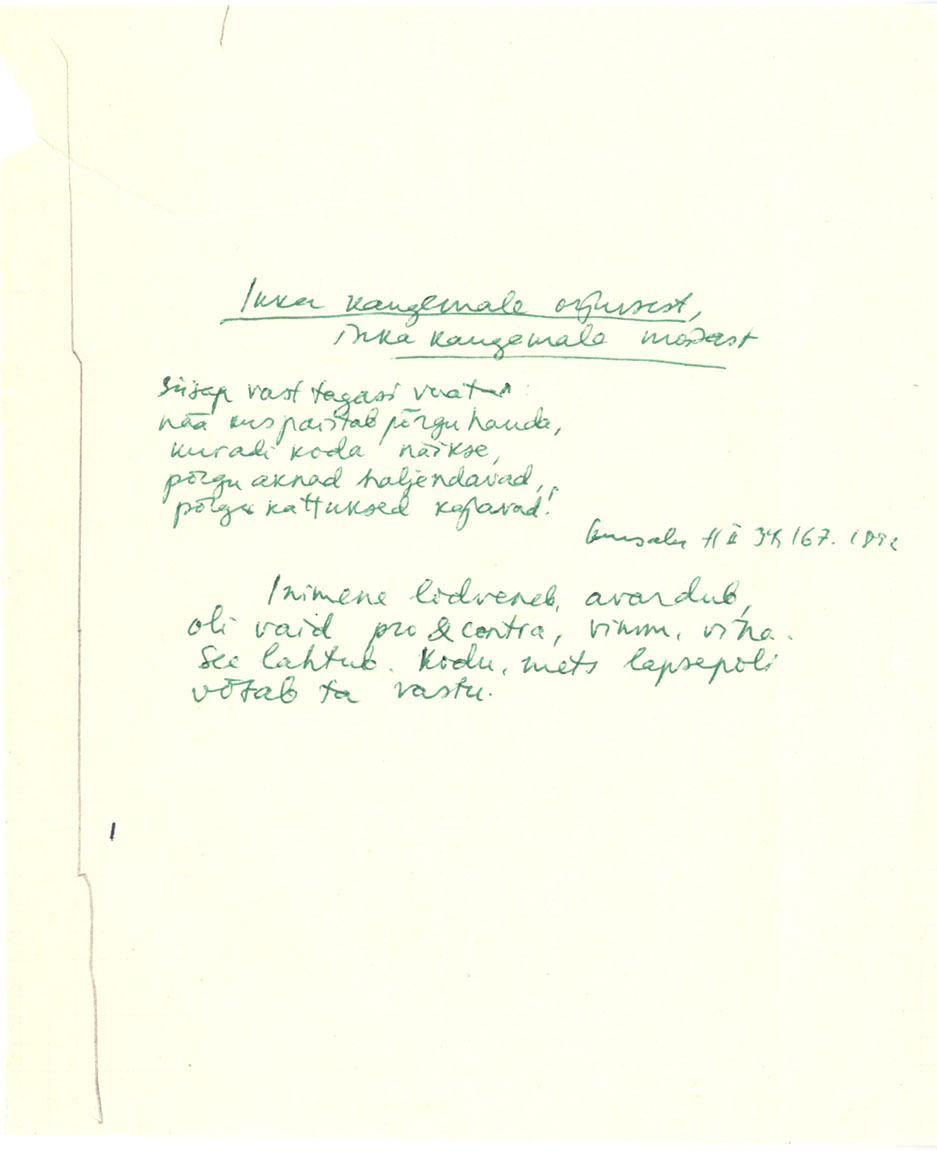 Ikka kaugemale orjusest,
ikka kaugemale mõisast
Siisap vast tagasi vaatan:
nää kus paistab põrguhauda,
kuradi koda näikse,
põrgu aknad haljendavad,
põrgu kattuksed kajavad!
H II 34, 167. 1892
Inimene liidveneb, avardub,
oli vaid pro & contra, vimm, viha.
See lahtub. Kodu, mets lapsepõli
võtab ta vastu.